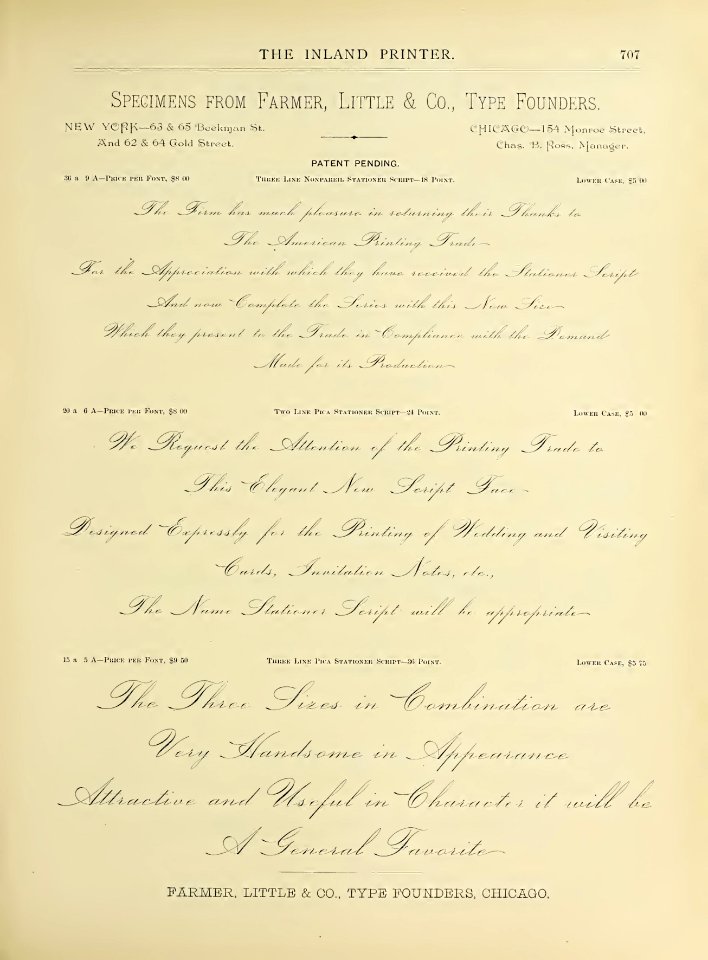 THE INLAND PRINTER. 707
SPECIMENS FROM FARMER, LITTLE & CO., TYPE FOUNDERS.
NEW YORK—63 & 65 Beekman St. CHICAGO—154 Monroe Street,
And 62 & 64 Gold Street. Chas. B. Ross, Manager.
PATENT PENDING.
36 a 9 A—PRICE PER FONT, $8 00 THREE LINE NONPAREIL STATIONER SCRIPT—18 POINT. LOWER CASE, $5 00
The Firm has much pleasure in returning their Thanks to
The American Printing Trade
For the Appreciation with which they have received the Stationer Script
And now Complete the Series with this New Size
Which they present to the Trade in Compliance with the Demand
Made for its Production
20 a 6 A—PRICE PER FONT, $8 00 TWO LINE PICA STATIONER SCRIPT—24 POINT. LOWER CASE, $5 00
We Request the Attention of the Printing Trade to
This Elegant New Script Face
Designed Expressly for the Printing of Wedding and Visiting
Cards, Invitation Notes, etc.,
The Name Stationer Script will be appropriate
15 a 5 A—PRICE PER FONT, $9 50 THREE LINE PICA STATIONER SCRIPT—36 POINT. LOWER CASE, $5 75
The Three Sizes in Combination are
Very Handsome in Appearance
Attractive and Useful in Character it will be
A General Favorite
FARMER, LITTLE & CO., TYPE FOUNDERS, CHICAGO.